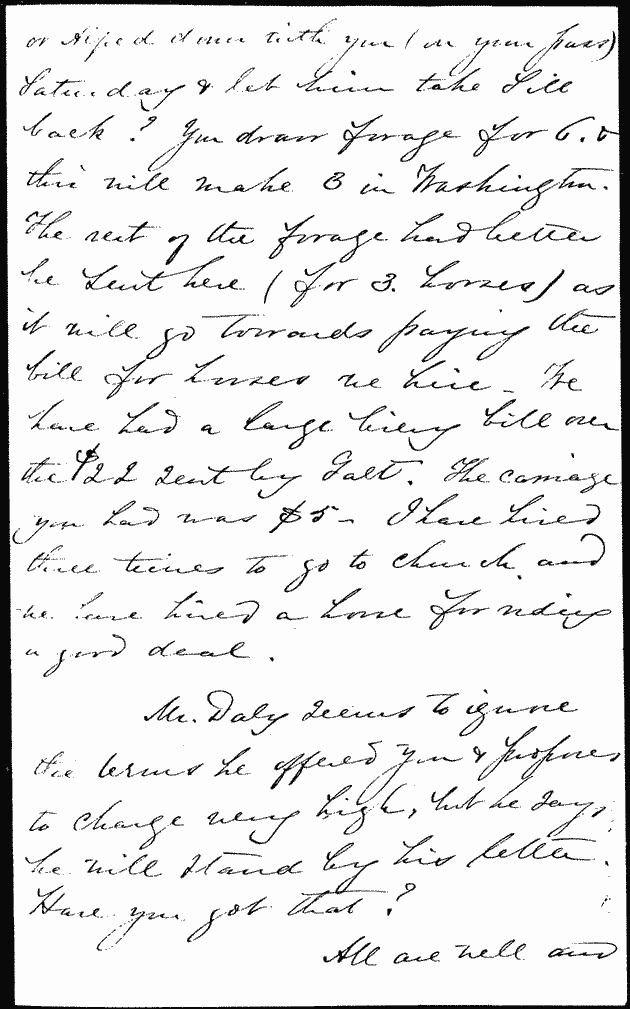 or down with you (on your pass)
Saturday & let him take Sill
back? You draw forage for 6. &
this will make 3 in Washington.
The rest of the forage had better
be sent here (for 3. horses) as
it will go towards paying the
bill for horses we hire - We
have had a large livery bill over
the $22 sent by Galt. The carriage
you had was $5 - I have hired
three times to go to church and
we have hired a horse for riding
a good deal.
Mr. Daly seems to ignore
the terms he offered you & proposes
to charge very high, but he says
he will stand by his letter.
Have you got that?
All are well and